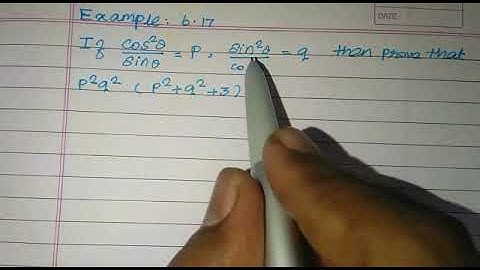 Example: 6.17
DATE
If cos²θ/sinθ = p, sin²θ/co = q than prove that
p²q² (p²+q²+3)